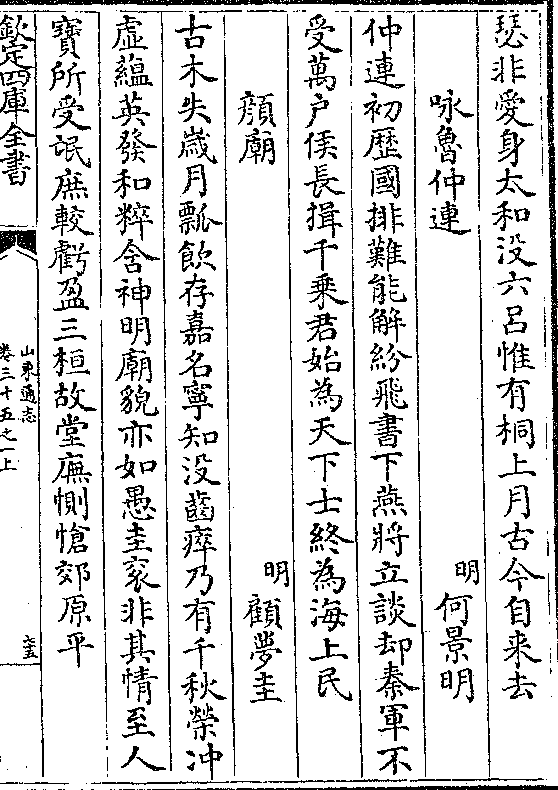 瑟非愛身太和没六呂惟有桐上月古今自来去
咏魯仲連 明 何景明
仲連初歴國排難能解紛飛書下燕將立談却秦軍不
受萬户侯長揖千乗君始為天下士終為海上民
顔廟 明 顧夢圭
古木失嵗月瓢飲存嘉名寧知没齒瘁乃有千秋榮冲
虚蘊英發和粹含神明廟貌亦如愚圭衮非其情至人
寶所受氓庶較虧盈三桓故堂廡惻愴郊原平
欽定四庫全書
山東通志
卷三十五之一上